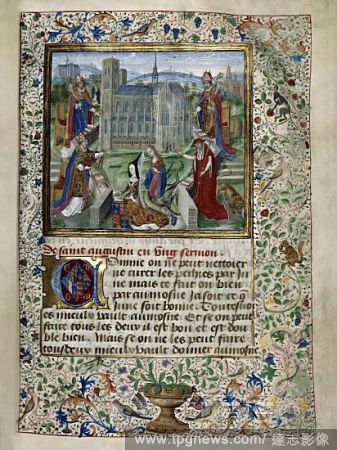 De saint augustin en ung sermon.
Comme on ne peut nettoier
ne curer les pechies par Ju
ne mais ce fait on bien
par aumosne Ja soit ce q
June soit bonne Touteffois
es mieulx vault aumosne. Et se on peut
faire tous les deux il est bon et est dou
ble bien. Mais se on ne les peut faire
tous deux mieulx vault donner aumosne.
www.tpgnews.com/ 達志影像